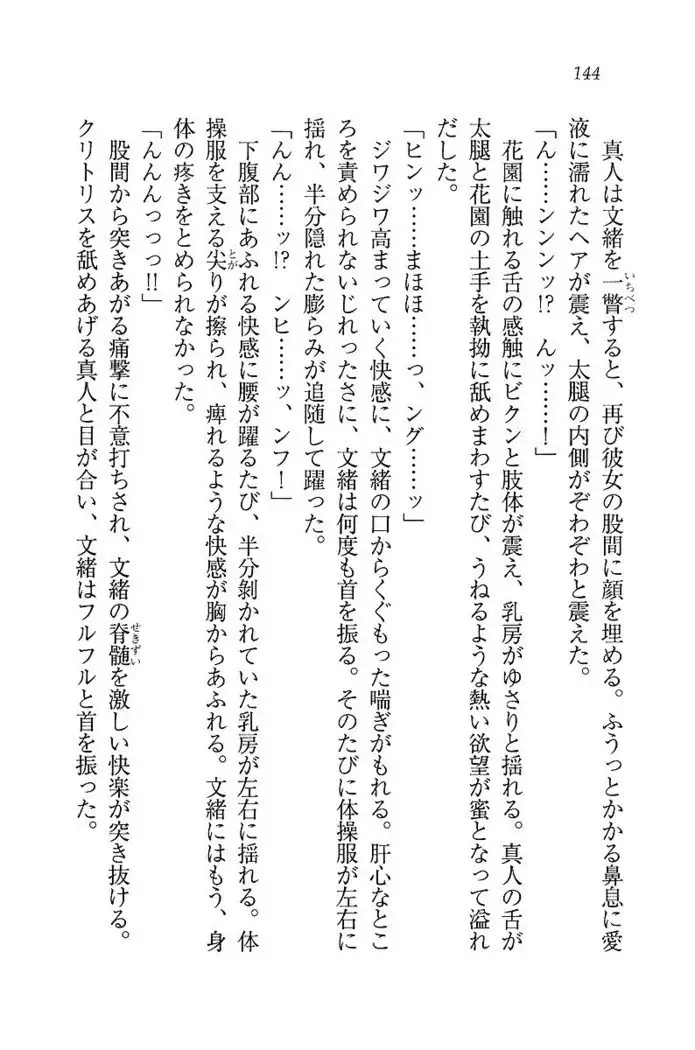 144
真人は文緒を一瞥すると、再び彼女の股間に顔を埋める。ふうっとかかる鼻息に愛
液に濡れたヘアが震え、太腿の内側がぞわぞわと震えた。
「ん……ンンンッ!? んッ……！」
花園に触れる舌の感触にビクンと肢体が震え、乳房がゆさりと揺れる。真人の舌が
太腿と花園の土手を執拗に舐めまわすたび、うねるような熱い欲望が蜜となって溢れ
だした。
「ヒンッ……まほほ……っ、ング……ッ」
ジワジワ高まっていく快感に、文緒の口からくぐもった喘ぎがもれる。肝心なとこ
ろを責められないじれったさに、文緒は何度も首を振る。そのたびに体操服が左右に
揺れ、半分隠れた膨らみが追随して躍った。
「んん……ッ!? ンヒ……ッ、ンフ！」
下腹部にあふれる快感に腰が躍るたび、半分剝かれていた乳房が左右に揺れる。体
操服を支える尖りが擦られ、痺れるような快感が胸からあふれる。文緒にはもう、身
体の疼きをとめられなかった。
「んんんっっっ!!」
股間から突きあがる痛撃に不意打ちされ、文緒の脊髄を激しい快楽が突き抜ける。
クリトリスを舐めあげる真人と目が合い、文緒はフルフルと首を振った。